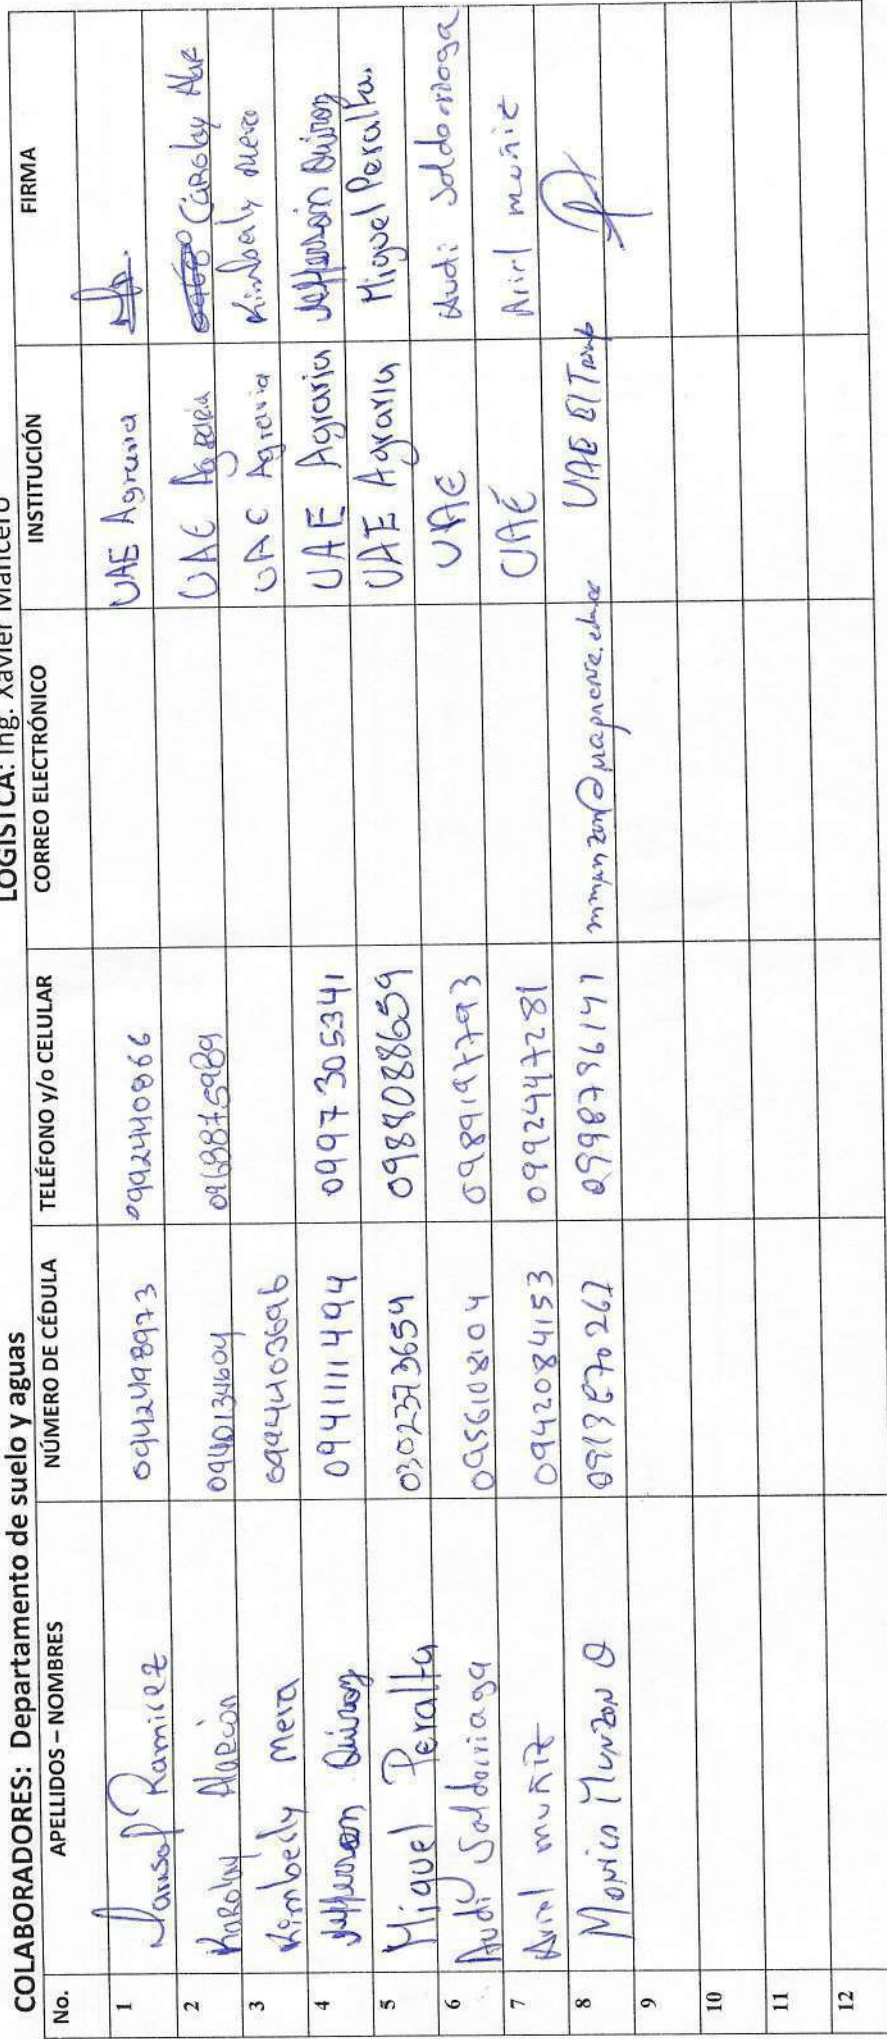 LOGISTCA: Ing. Xavier Mancero
COLABORADORES: Departamento de suelo y aguas
No. APELLIDOS – NOMBRES NÚMERO DE CÉDULA TELÉFONO y/o CELULAR CORREO ELECTRÓNICO INSTITUCIÓN FIRMA
1 Ramirez 0942498973 0992440866 UAE Agraria
2 Karolay Alarcón 0940134604 0968875989 UAE Agraria Carolay Alar
3 Kimberly Mera 0944403696 UAE Agraria Kimberly Mera
4 Jefferson Quiroz 0941111494 0997305341 UAE Agraria Jefferson Quiroz
5 Miguel Peralta 0302373654 0984088659 UAE Agraria Miguel Peralta.
6 Audi Saldarriaga 0956108104 0989197793 UAE Audi Saldarriaga
7 Ariel muñiz 0942084153 0992447281 UAE Ariel muñiz
8 Monica Munzon Q 0998736141 UAE El Triunfo
9
10
11
12